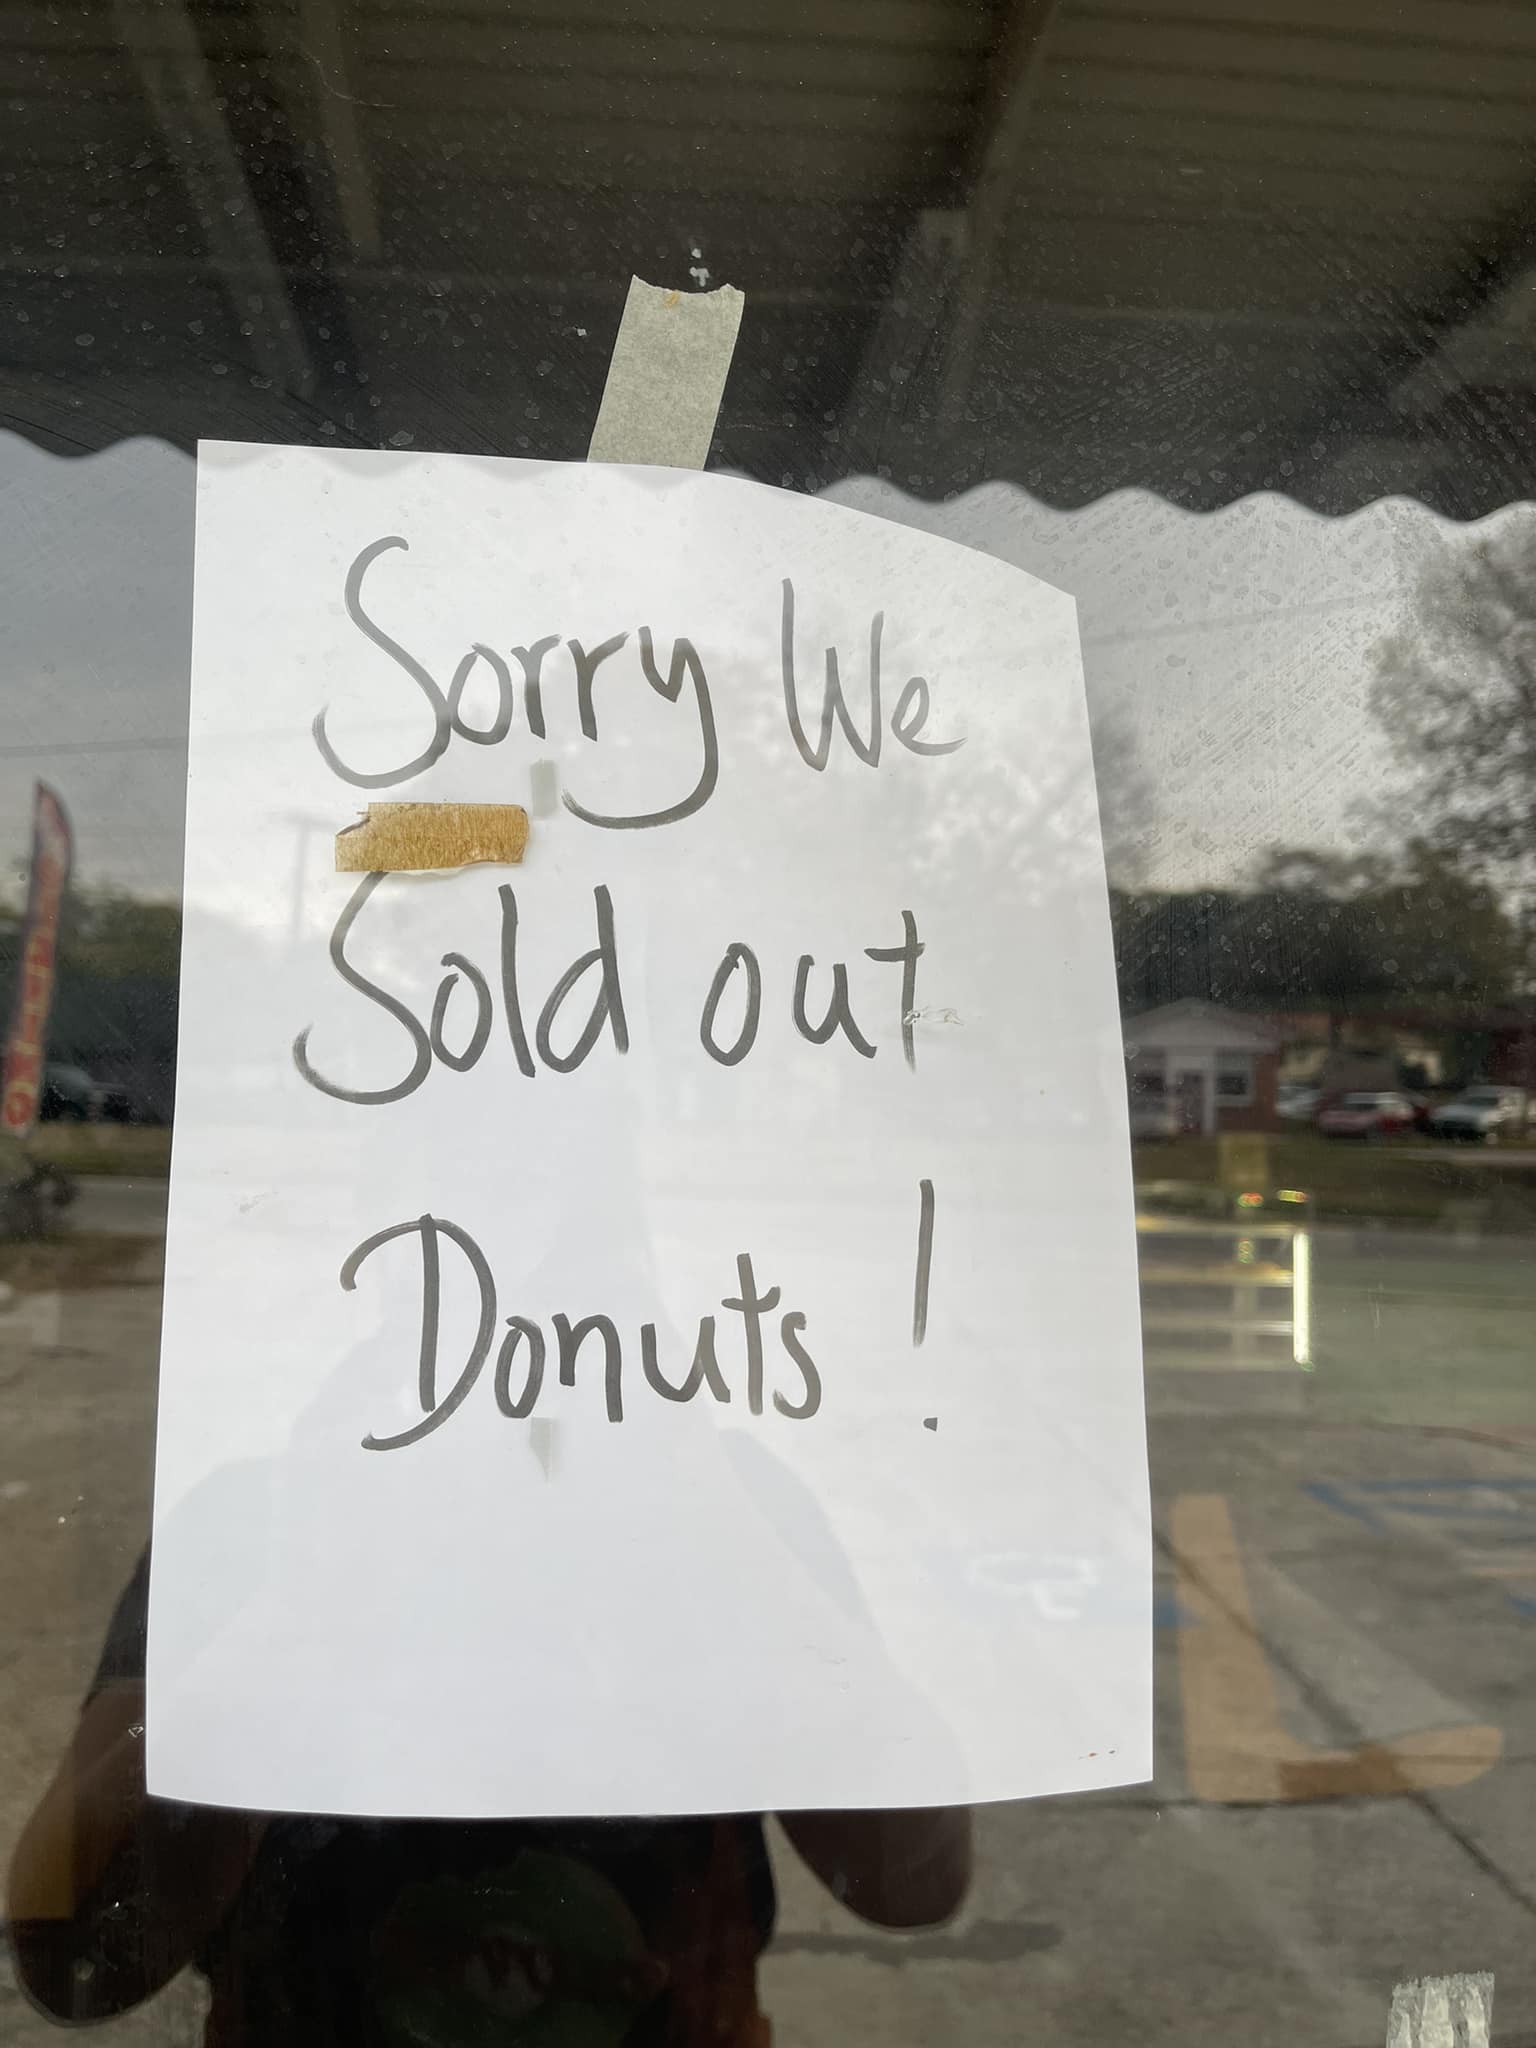 Sorry We
Sold out
Donuts !